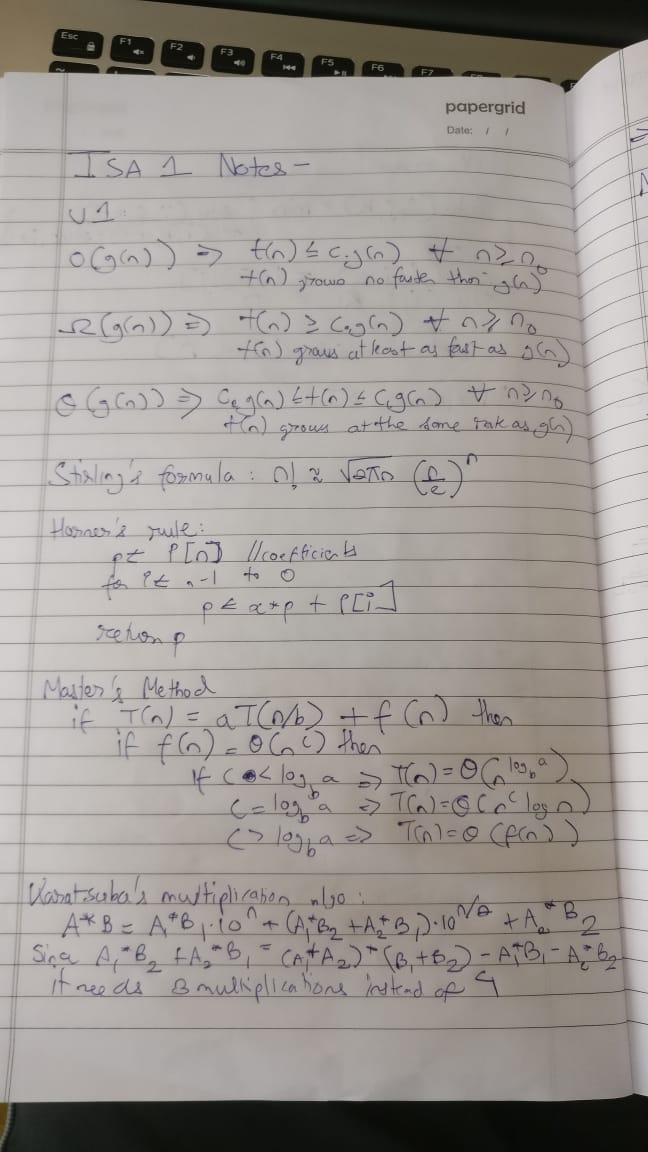 Esc F1 F2 F3 F4 F5 F6 F7
papergrid
Date: / /
ISA 1 Notes -
U1
O(g(n)) => t(n) ≤ c.g(n) ∀ n≥n₀
t(n) grows no faster than g(n)
Ω(g(n)) => t(n) ≥ c.g(n) ∀ n≥n₀
t(n) grows at least as fast as g(n)
Θ(g(n)) => C₂g(n) ≤ t(n) ≤ C₁g(n) ∀ n≥n₀
t(n) grows at the same rate as g(n)
Stirling's formula : n! ≈ √2πn (n/e)ⁿ
Horner's rule:
p ← P[n] //coefficients
for i ← n-1 to 0
p ← x*p + P[i]
return p
Master's Method
if T(n) = aT(n/b) + f(n) then
if f(n) = Θ(n^c) then
If C < log_b a => T(n) = Θ(n^(log_b a))
C = log_b a => T(n) = Θ(n^c log n)
C > log_b a => T(n) = Θ(f(n))
Karatsuba's multiplication algo:
A*B = A₁*B₁·10ⁿ + (A₁*B₂ + A₂*B₁)·10^(n/2) + A₂*B₂
Since A₁*B₂ + A₂*B₁ = (A₁+A₂)*(B₁+B₂) - A₁*B₁ - A₂*B₂
it needs 3 multiplications instead of 4